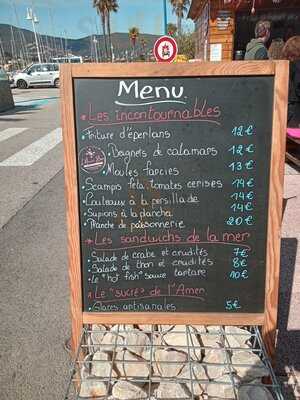 Menu
• Les incontournables
• Friture d'éperlans 12€
Beignets de calamars 12€
• Moules farcies 13€
• Scamps feta, tomates cerises 14€
• Couteaux à la persillade 14€
• Supions à la plancha 14€
• Planche de poissonnerie 20€
* Les sandwichs de la mer
• Salade de crabe et crudités 7€
• Salade de thon et crudités 8€
• Le "hot fish" sauce tartare 10€
* Le "sucré" de l'Amer
• Glaces artisanales 5€